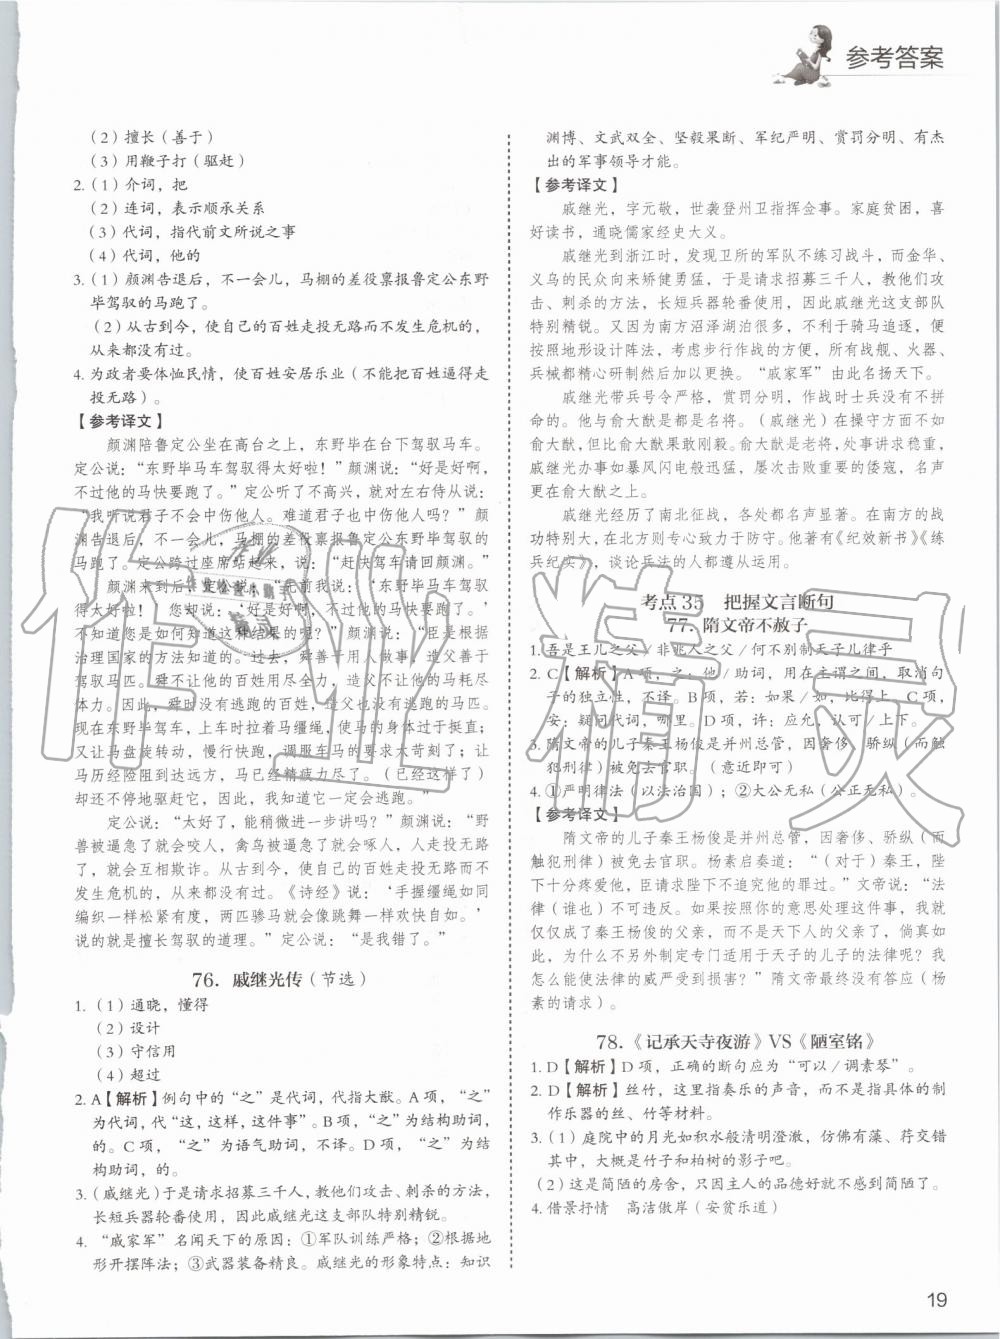 参考答案
（2）擅长（善于）
（3）用鞭子打（驱赶）
2.（1）介词，把
（2）连词，表示顺承关系
（3）代词，指代前文所说之事
（4）代词，他的
3.（1）颜渊告退后，不一会儿，马棚的差役禀报鲁定公东野
毕驾驭的马跑了。
（2）从古到今，使自己的百姓走投无路而不发生危机的，
从来都没有过。
4. 为政者要体恤民情，使百姓安居乐业（不能把百姓逼得走
投无路）。
【参考译文】
颜渊陪鲁定公坐在高台之上，东野毕在台下驾驭马车。
定公说：“东野毕马车驾驭得太好啦！”颜渊说：“好是好啊，
不过他的马快要跑了。”定公听了不高兴，就对左右侍从说：
“我听说君子不会中伤他人。难道君子也中伤他人吗？”颜
渊告退后，不一会儿，马棚的差役禀报鲁定公东野毕驾驭的
马跑了。定公跨过座席站起来，说：“赶快驾车请回颜渊。”
颜渊来到后，定公说：“先前我说：‘东野毕马车驾驭
得太好啦！’您却说：‘好是好啊，不过他的马快要跑了。’
不知道您是如何知道这种结果的呢？”颜渊说：“臣是根据
治理国家的方法知道的。过去，舜善于用人，造父善于驾
马。舜不让他的百姓用尽全力，造父不让他的马匹用尽体
力。因此，舜时没有逃跑的百姓，造父也没有逃跑的马匹。
现在东野毕驾车，上车时拉着马缰绳，使马的身体过于挺直；
又让马盘旋转动，慢行快跑，调服车马的要求太苛刻了；让
马历经险阻到达远方，马已经精疲力尽了。（已经这样了）
却还不停地驱赶它，因此，我知道它一定会逃跑。”
定公说：“太好了，能稍微进一步讲吗？”颜渊说：“野
兽被逼急了就会咬人，禽鸟被逼急了就会啄人，人走投无路
了，就会互相欺诈。从古到今，使自己的百姓走投无路而不
发生危机的，从来都没有过。《诗经》说：‘手握缰绳如同
编织一样松紧有度，两匹骖马就会像跳舞一样欢快自如。’
说的就是擅长驾驭的道理。”定公说：“是我错了。”
76. 戚继光传（节选）
1.（1）通晓，懂得
（2）设计
（3）守信用
（4）超过
2. A【解析】例句中的“之”是代词，代指大猷。A 项，“之”
为代词，代“这，这样，这件事”。B 项，“之”为结构助词，
的。C 项，“之”为语气助词，不译。D 项，“之”为结
构助词，的。
3.（戚继光）于是请求招募三千人，教他们攻击、刺杀的方法，
长短兵器轮番使用，因此戚继光这支部队特别精锐。
4. “戚家军”名闻天下的原因：①军队训练严格；②根据地
形开摆阵法；③武器装备精良。戚继光的形象特点：知识
渊博、文武双全、坚毅果断、军纪严明、赏罚分明、有杰
出的军事领导才能。
【参考译文】
戚继光，字元敬，世袭登州卫指挥佥事。家庭贫困，喜
好读书，通晓儒家经史大义。
戚继光到浙江时，发现卫所的军队不练习战斗，而金华、
义乌的民众向来矫健勇猛，于是请求招募三千人，教他们攻
击、刺杀的方法，长短兵器轮番使用，因此戚继光这支部队
特别精锐。又因为南方沼泽湖泊很多，不利于骑马追逐，便
按照地形设计阵法，考虑步行作战的方便，所有战舰、火器、
兵械都精心研制然后加以更换。“戚家军”由此名扬天下。
戚继光带兵号令严格，赏罚分明，作战时士兵没有不拼
命的。他与俞大猷是都是名将。（戚继光）在操守方面不如
俞大猷，但比俞大猷果敢刚毅。俞大猷是老将，处事讲求稳重，
戚继光办事如暴风闪电般迅猛，屡次击败重要的倭寇，名声
更在俞大猷之上。
戚继光经历了南北征战，各处都名声显著。在南方的战
功特别大，在北方则专心致力于防守。他著有《纪效新书》《练
兵纪实》，谈论兵法的人都遵从运用。
考点 35 把握文言断句
77. 隋文帝不赦子
1. 吾是王儿之父／非兆人之父／何不别制天子儿律乎
2. C【解析】A 项，之：他／助词，用在主谓之间，取消句
子的独立性，不译。B 项，若：如果／如，比得上。C 项，
安：疑问代词，哪里。D 项，许：应允，认可／上下。
3. 隋文帝的儿子秦王杨俊是并州总管，因奢侈、骄纵（而触
犯刑律）被免去官职。（意近即可）
4. ①严明律法（以法治国）；②大公无私（公正无私）。
【参考译文】
隋文帝的儿子秦王杨俊是并州总管，因奢侈、骄纵（而
触犯刑律）被免去官职。杨素启奏道：“（对于）秦王，陛
下十分疼爱他，臣请求陛下不追究他的罪过。”文帝说：“法
律（谁也）不可违反。如果按照你的意思处理这件事，我就
仅仅成了秦王杨俊的父亲，而不是天下人的父亲了，倘真如
此，为什么不另外制定专门适用于天子的儿子的法律呢？我
怎么能使法律的威严受到损害？”隋文帝最终没有答应（杨
素的请求）。
78.《记承天寺夜游》VS《陋室铭》
1. D【解析】D 项，正确的断句应为“可以／调素琴”。
2. D【解析】丝竹，这里指奏乐的声音，而不是指具体的制
作乐器的丝、竹等材料。
3.（1）庭院中的月光如积水般清明澄澈，仿佛有藻、荇交错
其中，大概是竹子和柏树的影子吧。
（2）这是简陋的房舍，只因主人的品德好就不感到简陋了。
4. 借景抒情　高洁傲岸（安贫乐道）
19
作业精灵